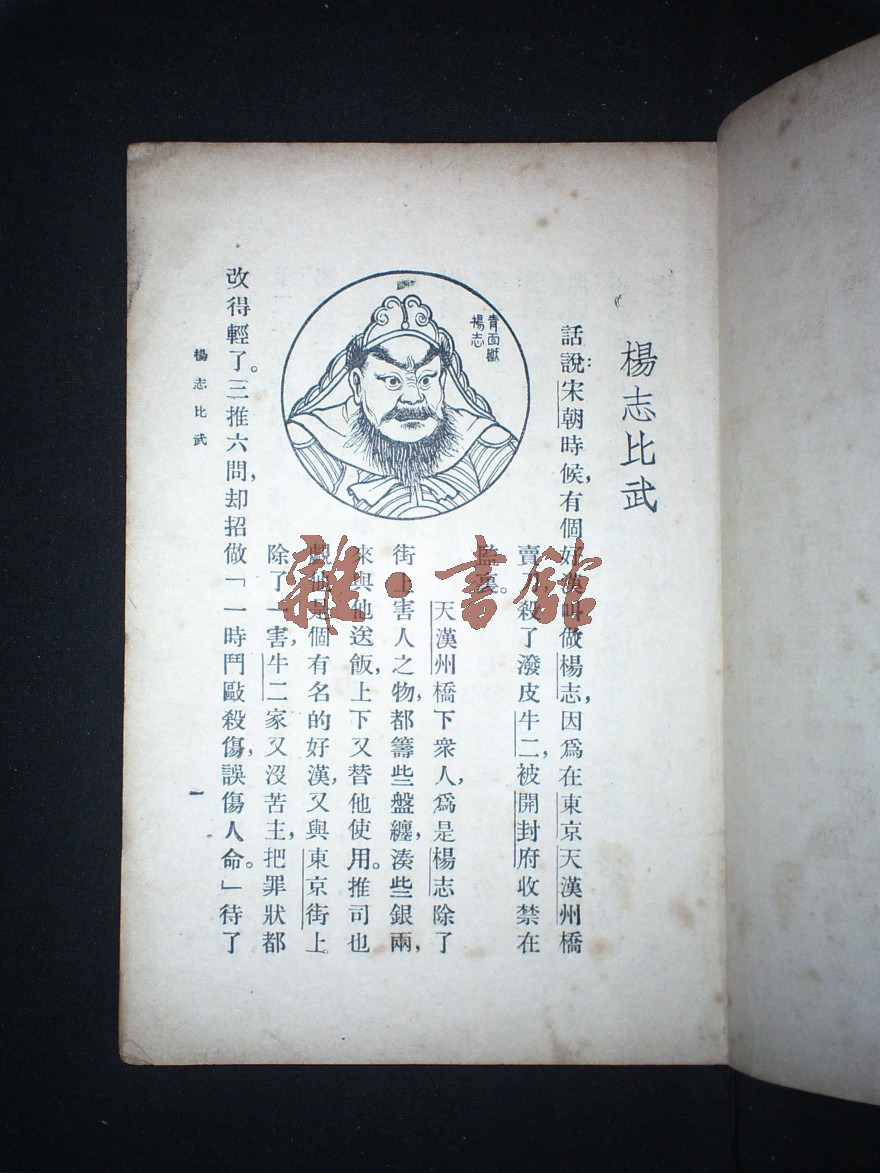 楊志比武
話說：宋朝時候，有個好漢叫做楊志，因爲在東京天漢州橋
賣刀，殺了潑皮牛二，被開封府收禁在
監裏。
天漢州橋下衆人，爲是楊志除了
街上害人之物，都籌些盤纏，湊些銀兩，
來與他送飯，上下又替他使用。推司也
覷他是個有名的好漢，又與東京街上
除了一害，牛二家又沒苦主，把罪狀都
改得輕了。三推六問，却招做「一時鬥毆殺傷，誤傷人命。」待了
青面獸
楊志
楊志比武
一
雜·書館